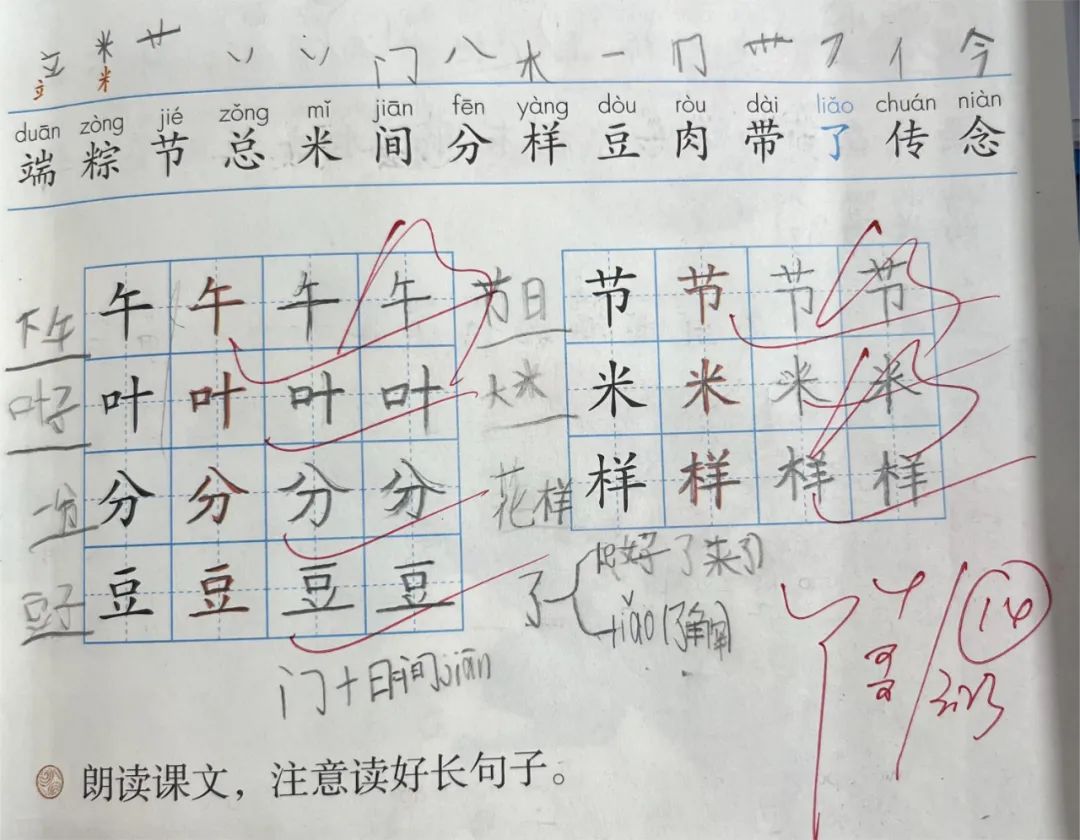 立 米 艹 丷 丷 门 八 木 一 冂 卅 乛 亻 今
立 米
duān zòng jié zǒng mǐ jiān fēn yàng dòu ròu dài liǎo chuán niàn
端 粽 节 总 米 间 分 样 豆 肉 带 了 传 念
下午 午 午 午 午 节日 节 节 节 节
叶子 叶 叶 叶 叶 大米 米 米 米 米
一分 分 分 分 分 花样 样 样 样 样
豆子 豆 豆 豆 豆
了 好了来了
liǎo(了解)
门十日间jiān
14
朗读课文，注意读好长句子。